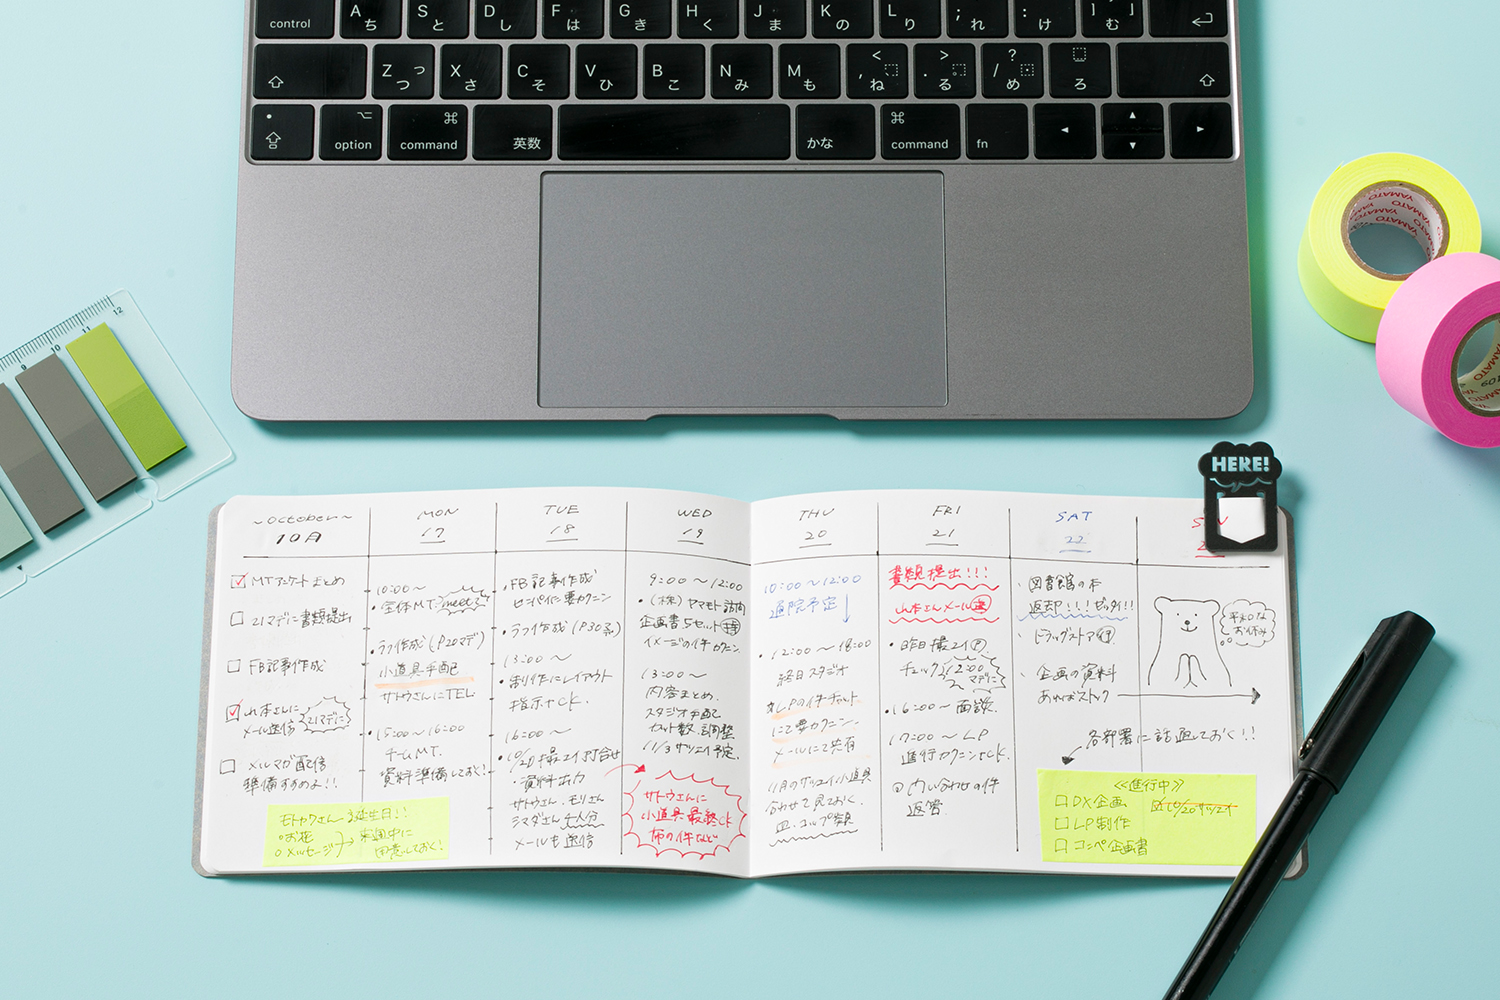 control
A ち
S と
D し
F は
G き
H く
J ま
K の
L り
; れ
: け
] む
Z つ っ
X さ
C そ
V ひ
B こ
N み
M も
< , ね
> . る
? / め
ろ
option
command
英数
かな
command
fn
12
11
10
9
YAMATO
YAMATO
YAMATO
YAMATO
HERE!
~October~
10月
MON
17
TUE
18
WED
19
THU
20
FRI
21
SAT
22
MTアンケートまとめ
21マデに書類提出
FB記事作成
山本さんに
メール送信
21マデに
メルマガ配信
準備すすめよ!!
モトヤクさん
お花
メッセージ
来週中に
用意しておく!
10:00〜
全体MT.
meet
・ラフ作成(P20マデ)
小道具手配
サトウさんにTEL
・15:00〜16:00
チームMT.
資料準備しておく!
・FB記事作成
センパイに要カクニン
・ラフ作成(P30マデ)
13:00〜
・制作にレイアウト
指示+CK.
16:00〜
・10/20撮エイ打合せ
・資料出力
サトウさん、モリさん
シマダさん 七人分
メールも送信
9:00〜12:00
・(株)ヤマモト訪問
企画書5セット
イメージの件カクニン
13:00〜
内容まとめ.
スタジオ手配
カット数 調整
11/3サツエイ予定.
サトウさんに
小道具最終CK
柿の件など
10:00〜12:00
通院予定
・12:00〜18:00
終日スタジオ
LPの件チャット
にて要カクニン
メールにて共有
11月のサツエイ小道具
合わせて見ておく.
皿・コップ
書類提出!!!
山本さんメール
・昨日撮エイ
チェック
12:00
マデに
・16:00〜面談.
17:00〜LP
進行カクニン+CK.
問い合わせの件
返答
図書館の本
返却!!!ゼッタイ!!
ドラッグストア
企画の資料
あればストック
平和な
お休み
各部署に話通しておく!!
≪進行中≫
DX企画
LP制作
コンペ企画書
10/20サツエイ